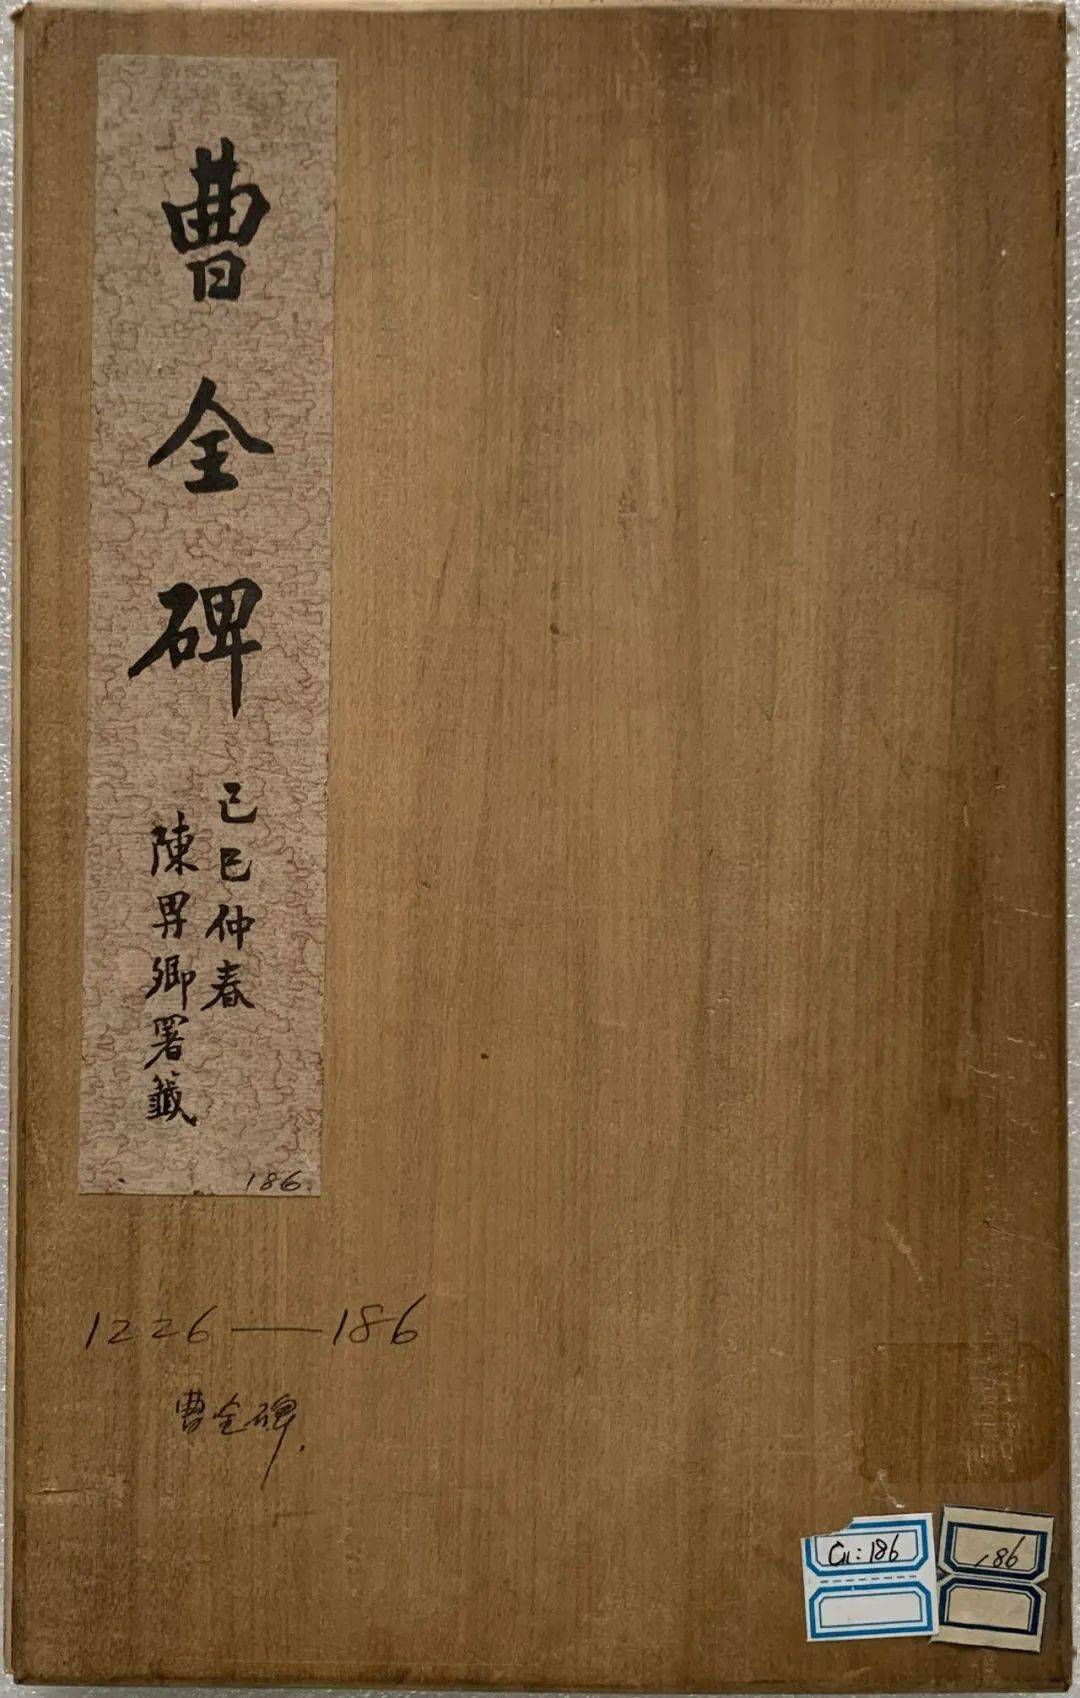 曹全碑
己巳仲春
陳羿卿署籤
186
1226—186
曹全碑.
G11:186
186